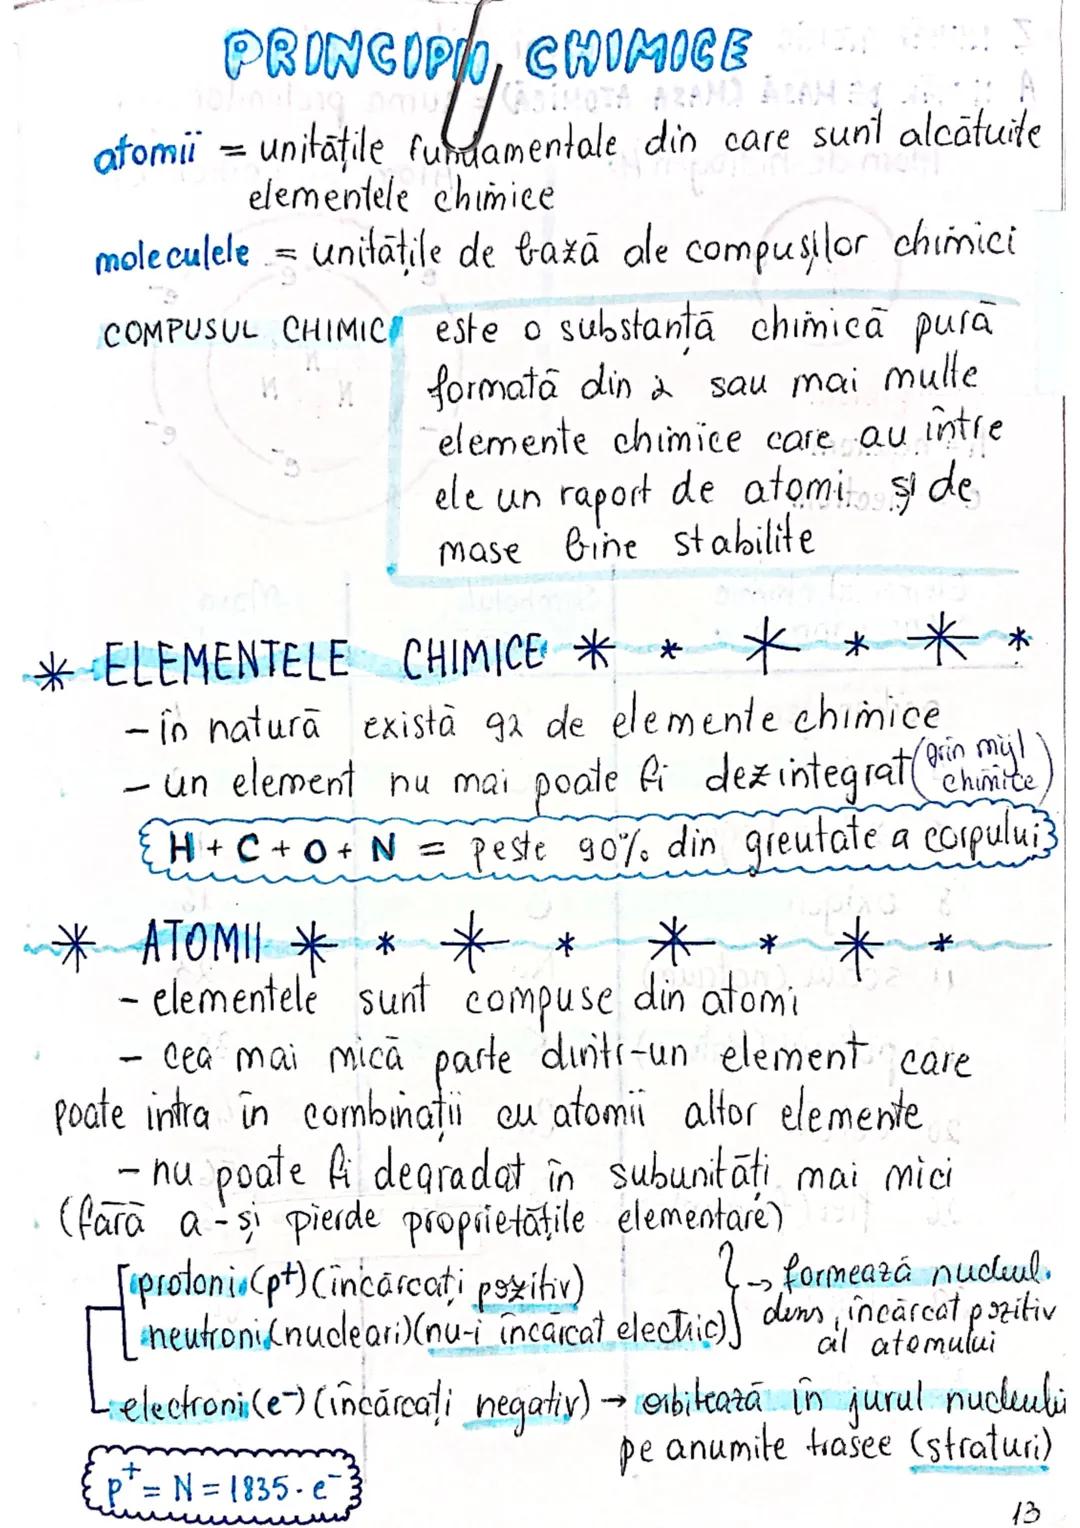 PRINCIPII CHIMICE
atomii = unitățile fundamentale din care sunt alcătuite
elementele chimice
moleculele = unitățile de bază ale compușilor chimici
COMPUSUL CHIMIC este o substanță chimică pură
formată din 2 sau mai multe
elemente chimice care au între
ele un raport de atomi și de
mase bine stabilite
* ELEMENTELE CHIMICE * * * * * *
- în natură există 92 de elemente chimice
- un element nu mai poate fi dezintegrat (prin mijl chimice)
H + C + O + N = peste 90% din greutate a corpului
* ATOMII * * * * * * * *
- elementele sunt compuse din atomi
- cea mai mică parte dintr-un element care
poate intra în combinații cu atomii altor elemente
- nu poate fi degradat în subunități mai mici
(fără a-și pierde proprietățile elementare)
protoni (p+) (încărcați pozitiv) } → formează nucleul
neutroni (nucleari) (nu-i încărcat electric) dens, încărcat pozitiv
al atomului
electroni (e-) (încărcați negativ) → orbitează în jurul nucleului
pe anumite trasee (straturi)
p+ = N = 1835 · e-
13